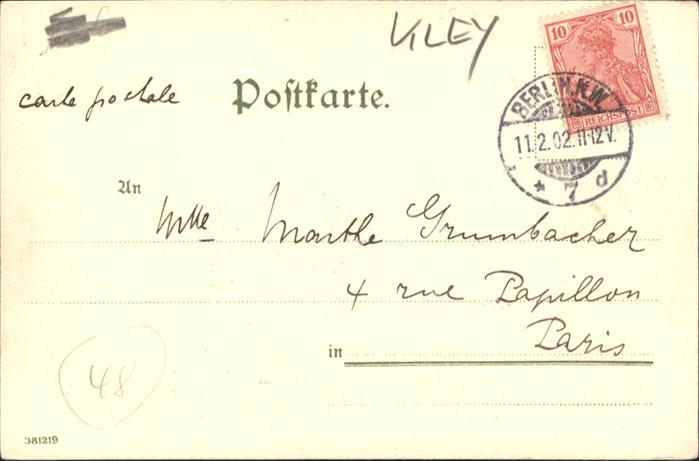 VILEY
10 10
REICHSPOST
carte postale Postkarte.
BERLIN, N.W.
11.2.02.11-12V.
* 7 d
An
Mlle Marthe Grumbacher
4 rue Papillon
in Paris
48
381219